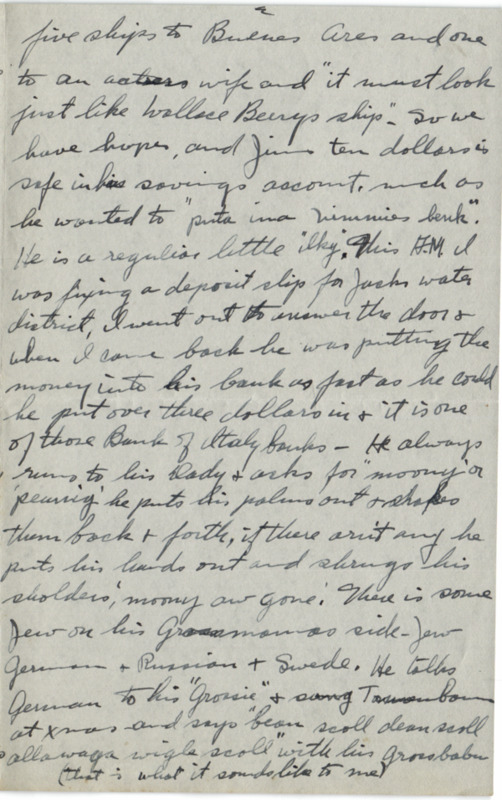 2
five ships to Buenes Ares and one
to an actors wife and "it must look
just like Wallace Beerys ship". So we
have hopes, and Jims ten dollars is
safe in his savings account, much as
he wanted to "puta ina Jimmies benk".
He is a regular little "ilky". This A.M. I
was fixing a deposit slip for Jacks water
district, I went out to answer the door &
when I came back he was putting the
money into his bank as fast as he could
he put over three dollars in & it is one
of those Bank of Italy banks - He always
runs to his Dady & asks for "moony" or
"peunig" he puts his palms out & shakes
them back & forth, if there arn't any he
puts his hands out and shrugs his
sholders, 'moony aw gone'. There is some
Jew on his Grossmamas side - Jew
German & Russian & Swede. He talks
German to his "Grossie" & sang Tannenbaum
at xmas and says "bean scoll dean scoll
allawaga wigla scoll" with his Grossbabu
(that is what it sounds like to me)